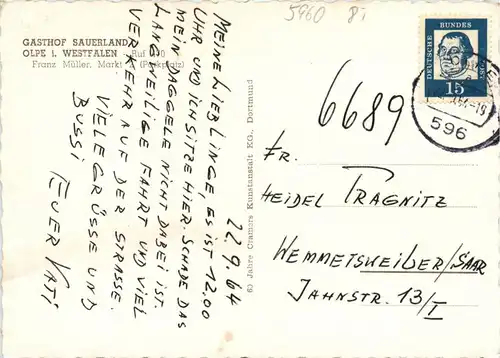 5960 8i
GASTHOF SAUERLAND
OLPE i. WESTFALEN - Ruf
Franz Müller, Markt 2 (Parkplatz)
22.9.64
MEINE LIEBLINGE, ES IST 12.00
UHR UND ICH SITZE HIER. SCHADE DAS
MEIN DAGGELE NICHT DABEI IST.
LANGWEILIGE FAHRT UND VIEL
VERKEHR AUF DER STRASSE.
VIELE GRÜSSE UND
BUSSI EUER VATI
60 Jahre Cramers Kunstanstalt KG., Dortmund
DEUTSCHE BUNDESPOST
15
596
6689
FR.
HEIDEL TRAGNITZ
WEMMETSWEILER/SAAR
JAHNSTR. 13/I